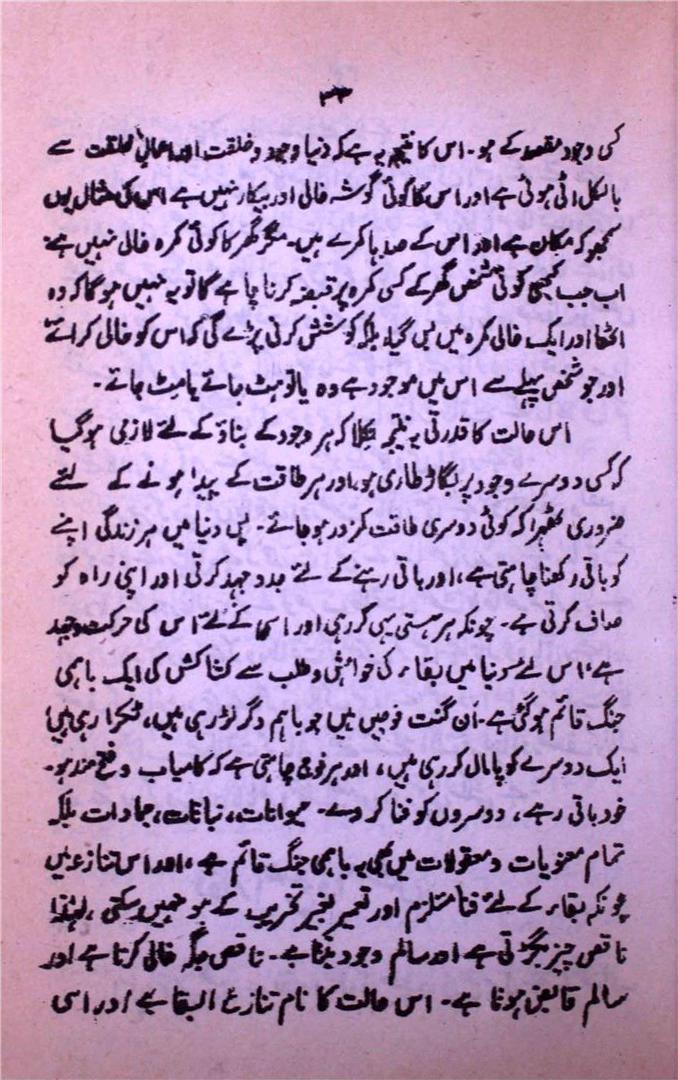 کسی وجود مقصد کے ہو۔ اس کا نتیجہ یہ ہے کہ دنیا وجود و خلقت اور اعمالِ خلقت سے
بالکل اٹی ہوئی ہے اور اس کا کوئی گوشہ خالی اور بیکار نہیں ہے اس کی مثال یوں
سمجھو کہ مکان ہے اور اس کے صدہا کمرے ہیں۔ مگر گھر کا کوئی کمرہ خالی نہیں ہے۔
اب جب کبھی کوئی شخص گھر کے کسی کمرہ پر قبضہ کرنا چاہے گا تو یہ نہیں ہوگا کہ وہ
اٹھا اور ایک خالی کمرہ میں بس گیا، بلکہ کوشش کرنی پڑے گی کہ اس کو خالی کرائے
اور جو شخص پہلے سے اس میں موجود ہے وہ یا تو ہٹ جائے یا مٹ جائے۔
اس حالت کا قدرتی یہ نتیجہ نکلا کہ ہر وجود کے بناؤ کے لئے لازمی ہوگیا
کہ کسی دوسرے وجود پر بگاڑ طاری ہو، اور ہر طاقت کے پیدا ہونے کے لئے
ضروری ٹھہرا کہ کوئی دوسری طاقت کمزور ہو جائے۔ پس دنیا میں ہر زندگی اپنے
کو باقی رکھنا چاہتی ہے، اور باقی رہنے کے لئے جدوجہد کرتی اور اپنی راہ کو
صاف کرتی ہے۔ چونکہ ہر ہستی یہی کر رہی اور اسی کے لئے اس کی حرکت و جہد
ہے، اس لئے دنیا میں بقاء کی خواہش و طلب سے کشاکش کی ایک باہمی
جنگ قائم ہوگئی ہے۔ اَن گنت فوجیں ہیں جو باہم دگر لڑ رہی ہیں، ٹکرا رہی ہیں
ایک دوسرے کو پامال کر رہی ہیں، اور ہر فوج چاہتی ہے کہ کامیاب و فتح مند ہو۔
خود باقی رہے، دوسروں کو فنا کر دے۔ حیوانات، نباتات، جمادات بلکہ
تمام معنویات و معقولات میں بھی یہ باہمی جنگ قائم ہے، اور اس تنازع میں
چونکہ بقاء کے لئے فنا مستلزم اور تعمیر بغیر تخریب کے ہو نہیں سکتی، لہٰذا
ناقص چیز بگڑتی ہے اور سالم وجود بنتا ہے۔ ناقص جگہ خالی کرتا ہے اور
سالم قابض ہوتا ہے۔ اس حالت کا نام تنازع البقا ہے اور اسی